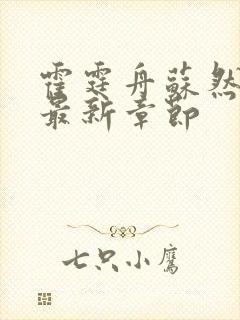 霍霆舟蘇然
最新章節
七只小鷹